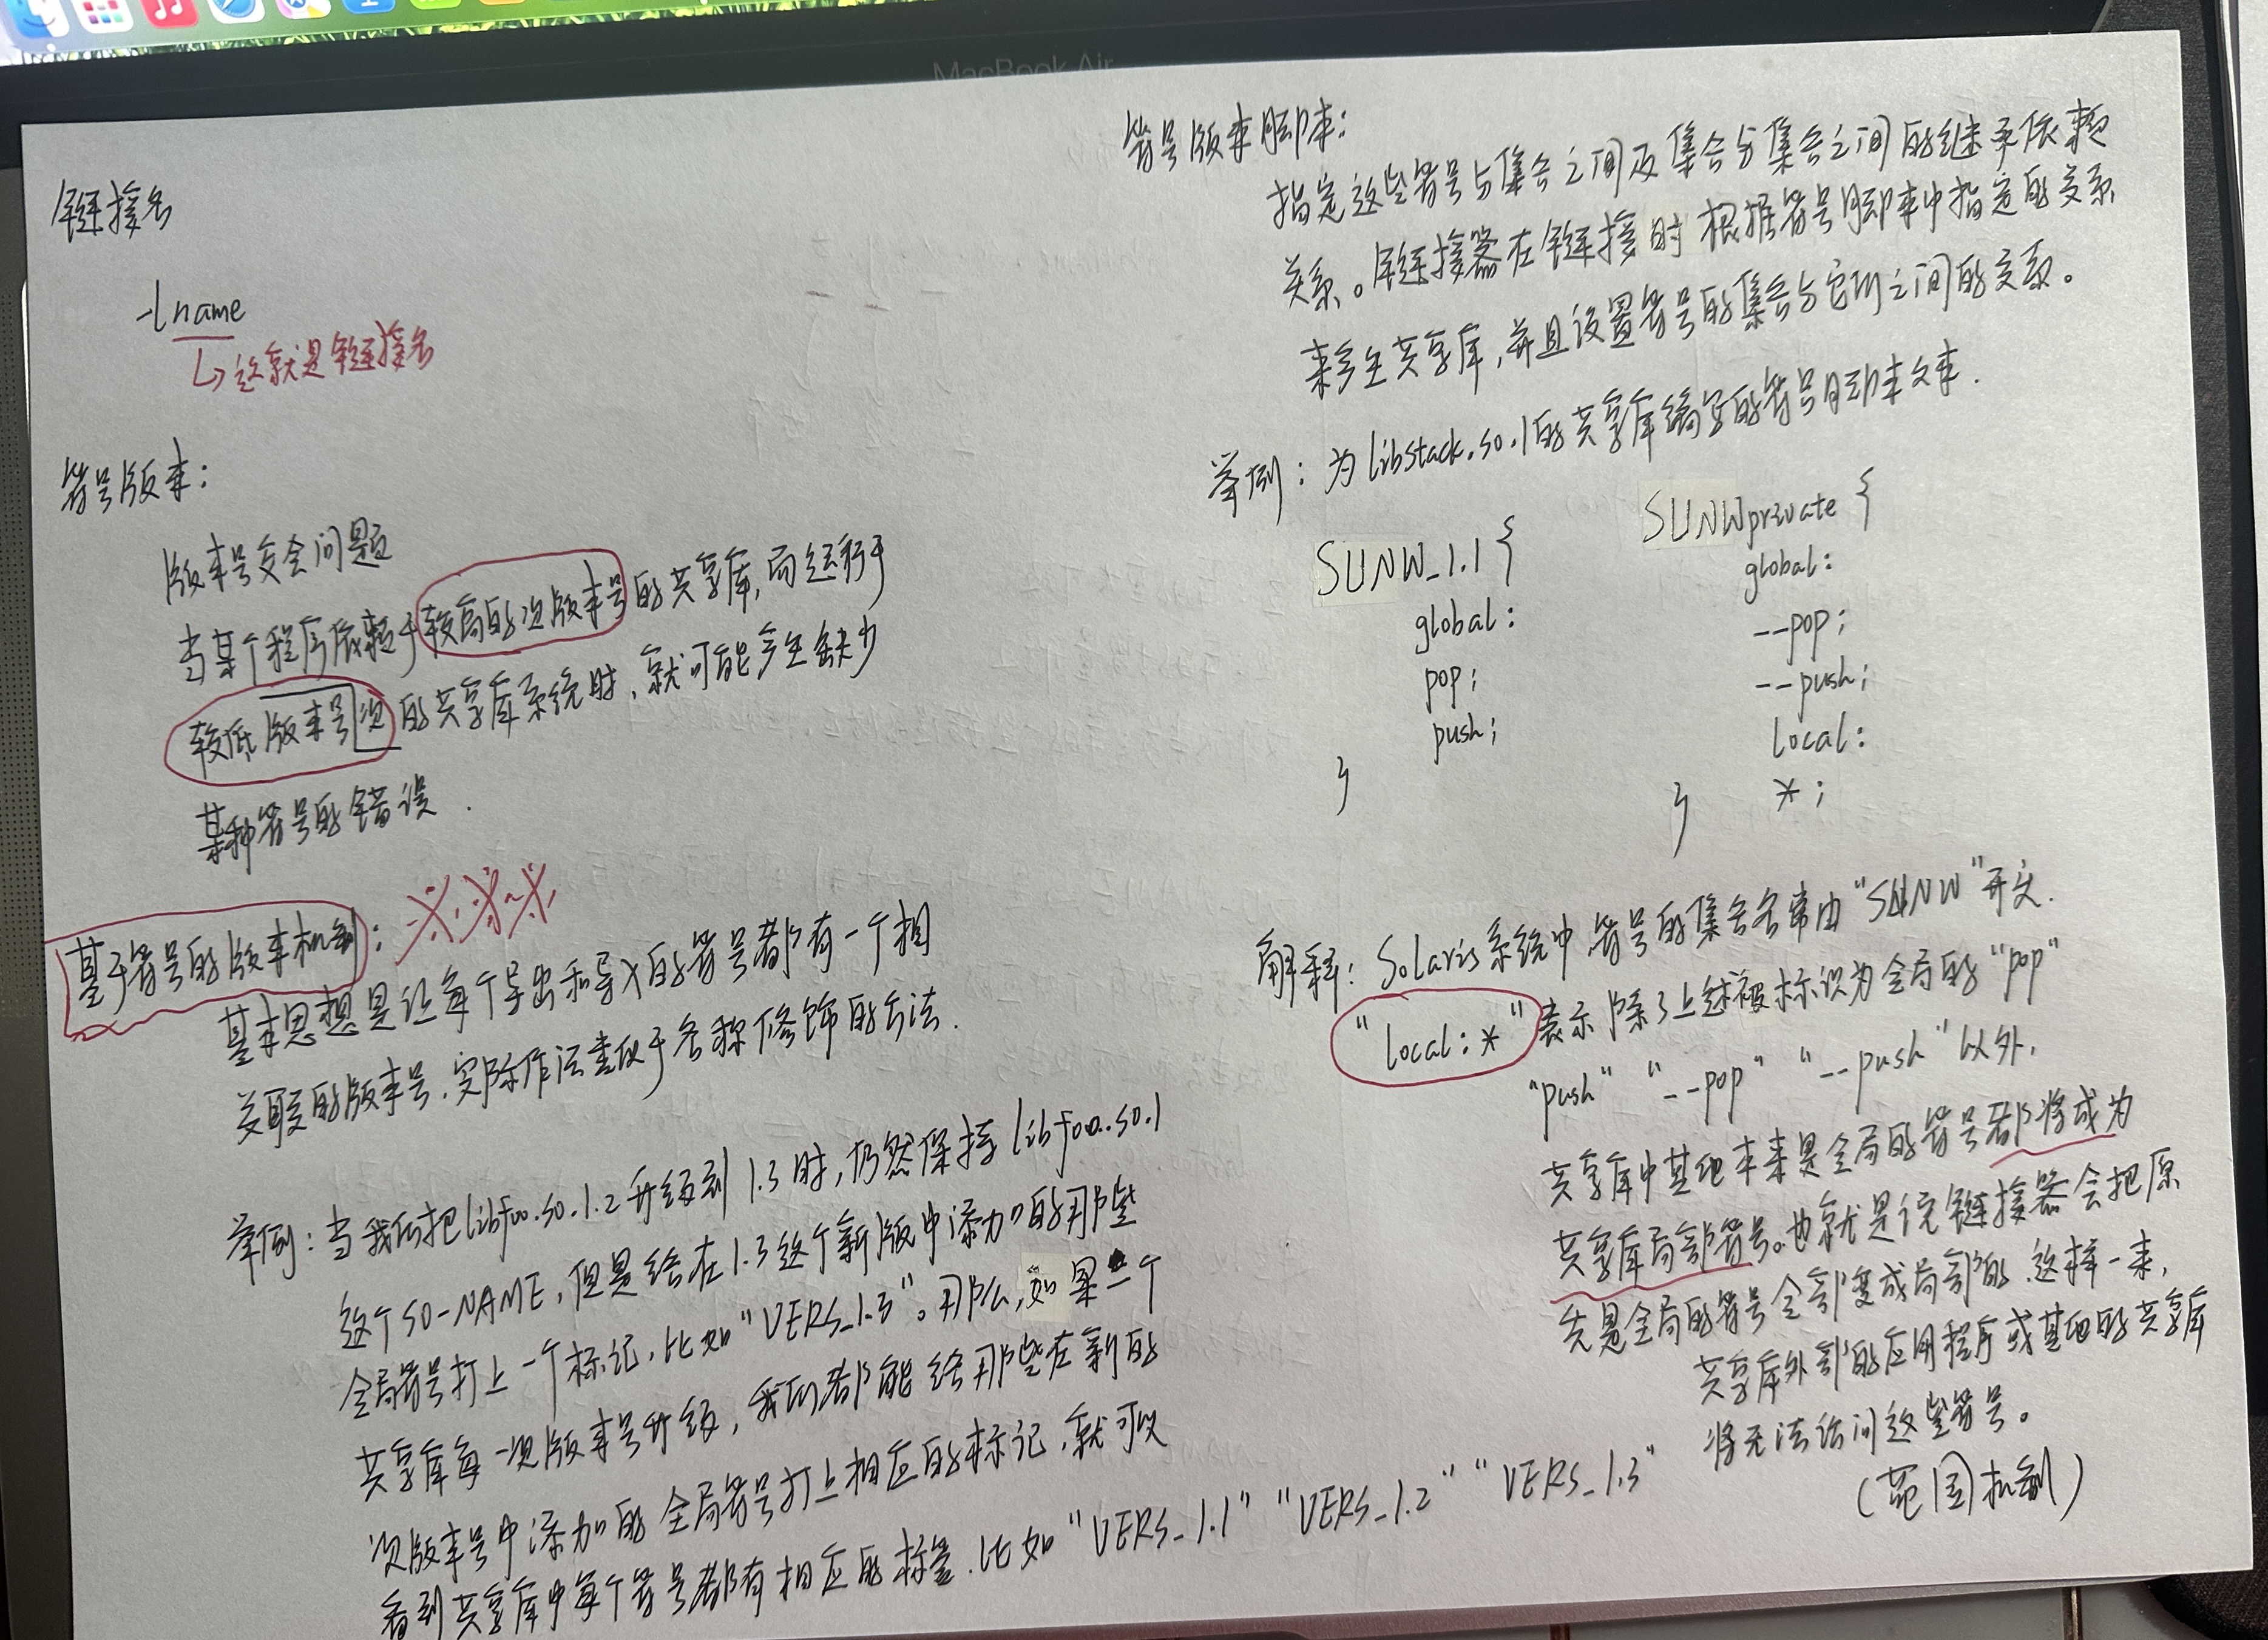 MacBook Air
链接名
-lname
↳这就是链接名
符号版本:
版本号交会问题
当某个程序依赖于较高的次版本号的共享库,而运行于
较低版本号次的共享库系统时,就可能产生缺少
某种符号的错误.
基于符号的版本机制:
基本思想是让每个导出和导入的符号都有一个相
关联的版本号.实际作法类似于名称修饰的方法.
举例:当我们把libfoo.so.1.2升级到1.3时,仍然保持libfoo.so.1
这个SO-NAME,但是给在1.3这个新版中添加的那些
全局符号打上一个标记,比如"VERS_1.3"。那么,如果一个
共享库每一次版本号升级,我们都能给那些在新的
次版本号中添加的全局符号打上相应的标记,就可以
看到共享库中每个符号都有相应的标签.比如"VERS_1.1" "VERS_1.2" "VERS_1.3"
符号版本脚本:
指定这些符号与集合之间及集合与集合之间的继承依赖
关系。链接器在链接时根据符号脚本中指定的关系
来产生共享库,并且设置符号的集合与它们之间的关系。
举例:为libstack.so.1的共享库编写的符号脚本文本.
SUNW_1.1 {
global:
pop;
push;
}
SUNWprivate {
global:
--pop;
--push;
local:
*;
}
解释:Solaris系统中,符号的集合名常由"SUNW"开头.
"local:*"表示除了上述被标识为全局的"pop"
"push" "--pop" "--push"以外,
共享库中其他本来是全局的符号都将成为
共享库局部符号。也就是说链接器会把原
先是全局的符号全部变成局部的.这样一来,
共享库外部的应用程序或其他的共享库
将无法访问这些符号。
(范围机制)